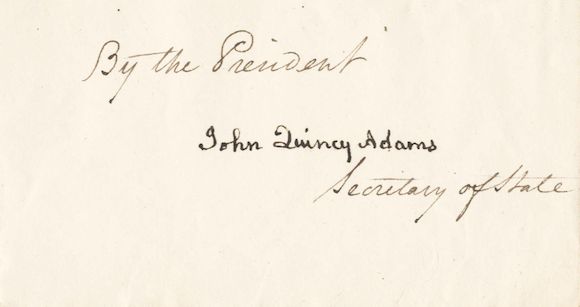 By the President
John Quincy Adams
Secretary of State